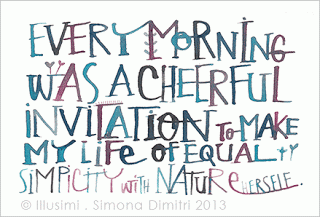 EVERY MORNING
WAS A CHEERFUL
INVITATION TO MAKE
MY LIFE OF EQUAL
SIMPICITY WITH NATURE HERSELF.
© Illusimi . Simona Dimitri 2013